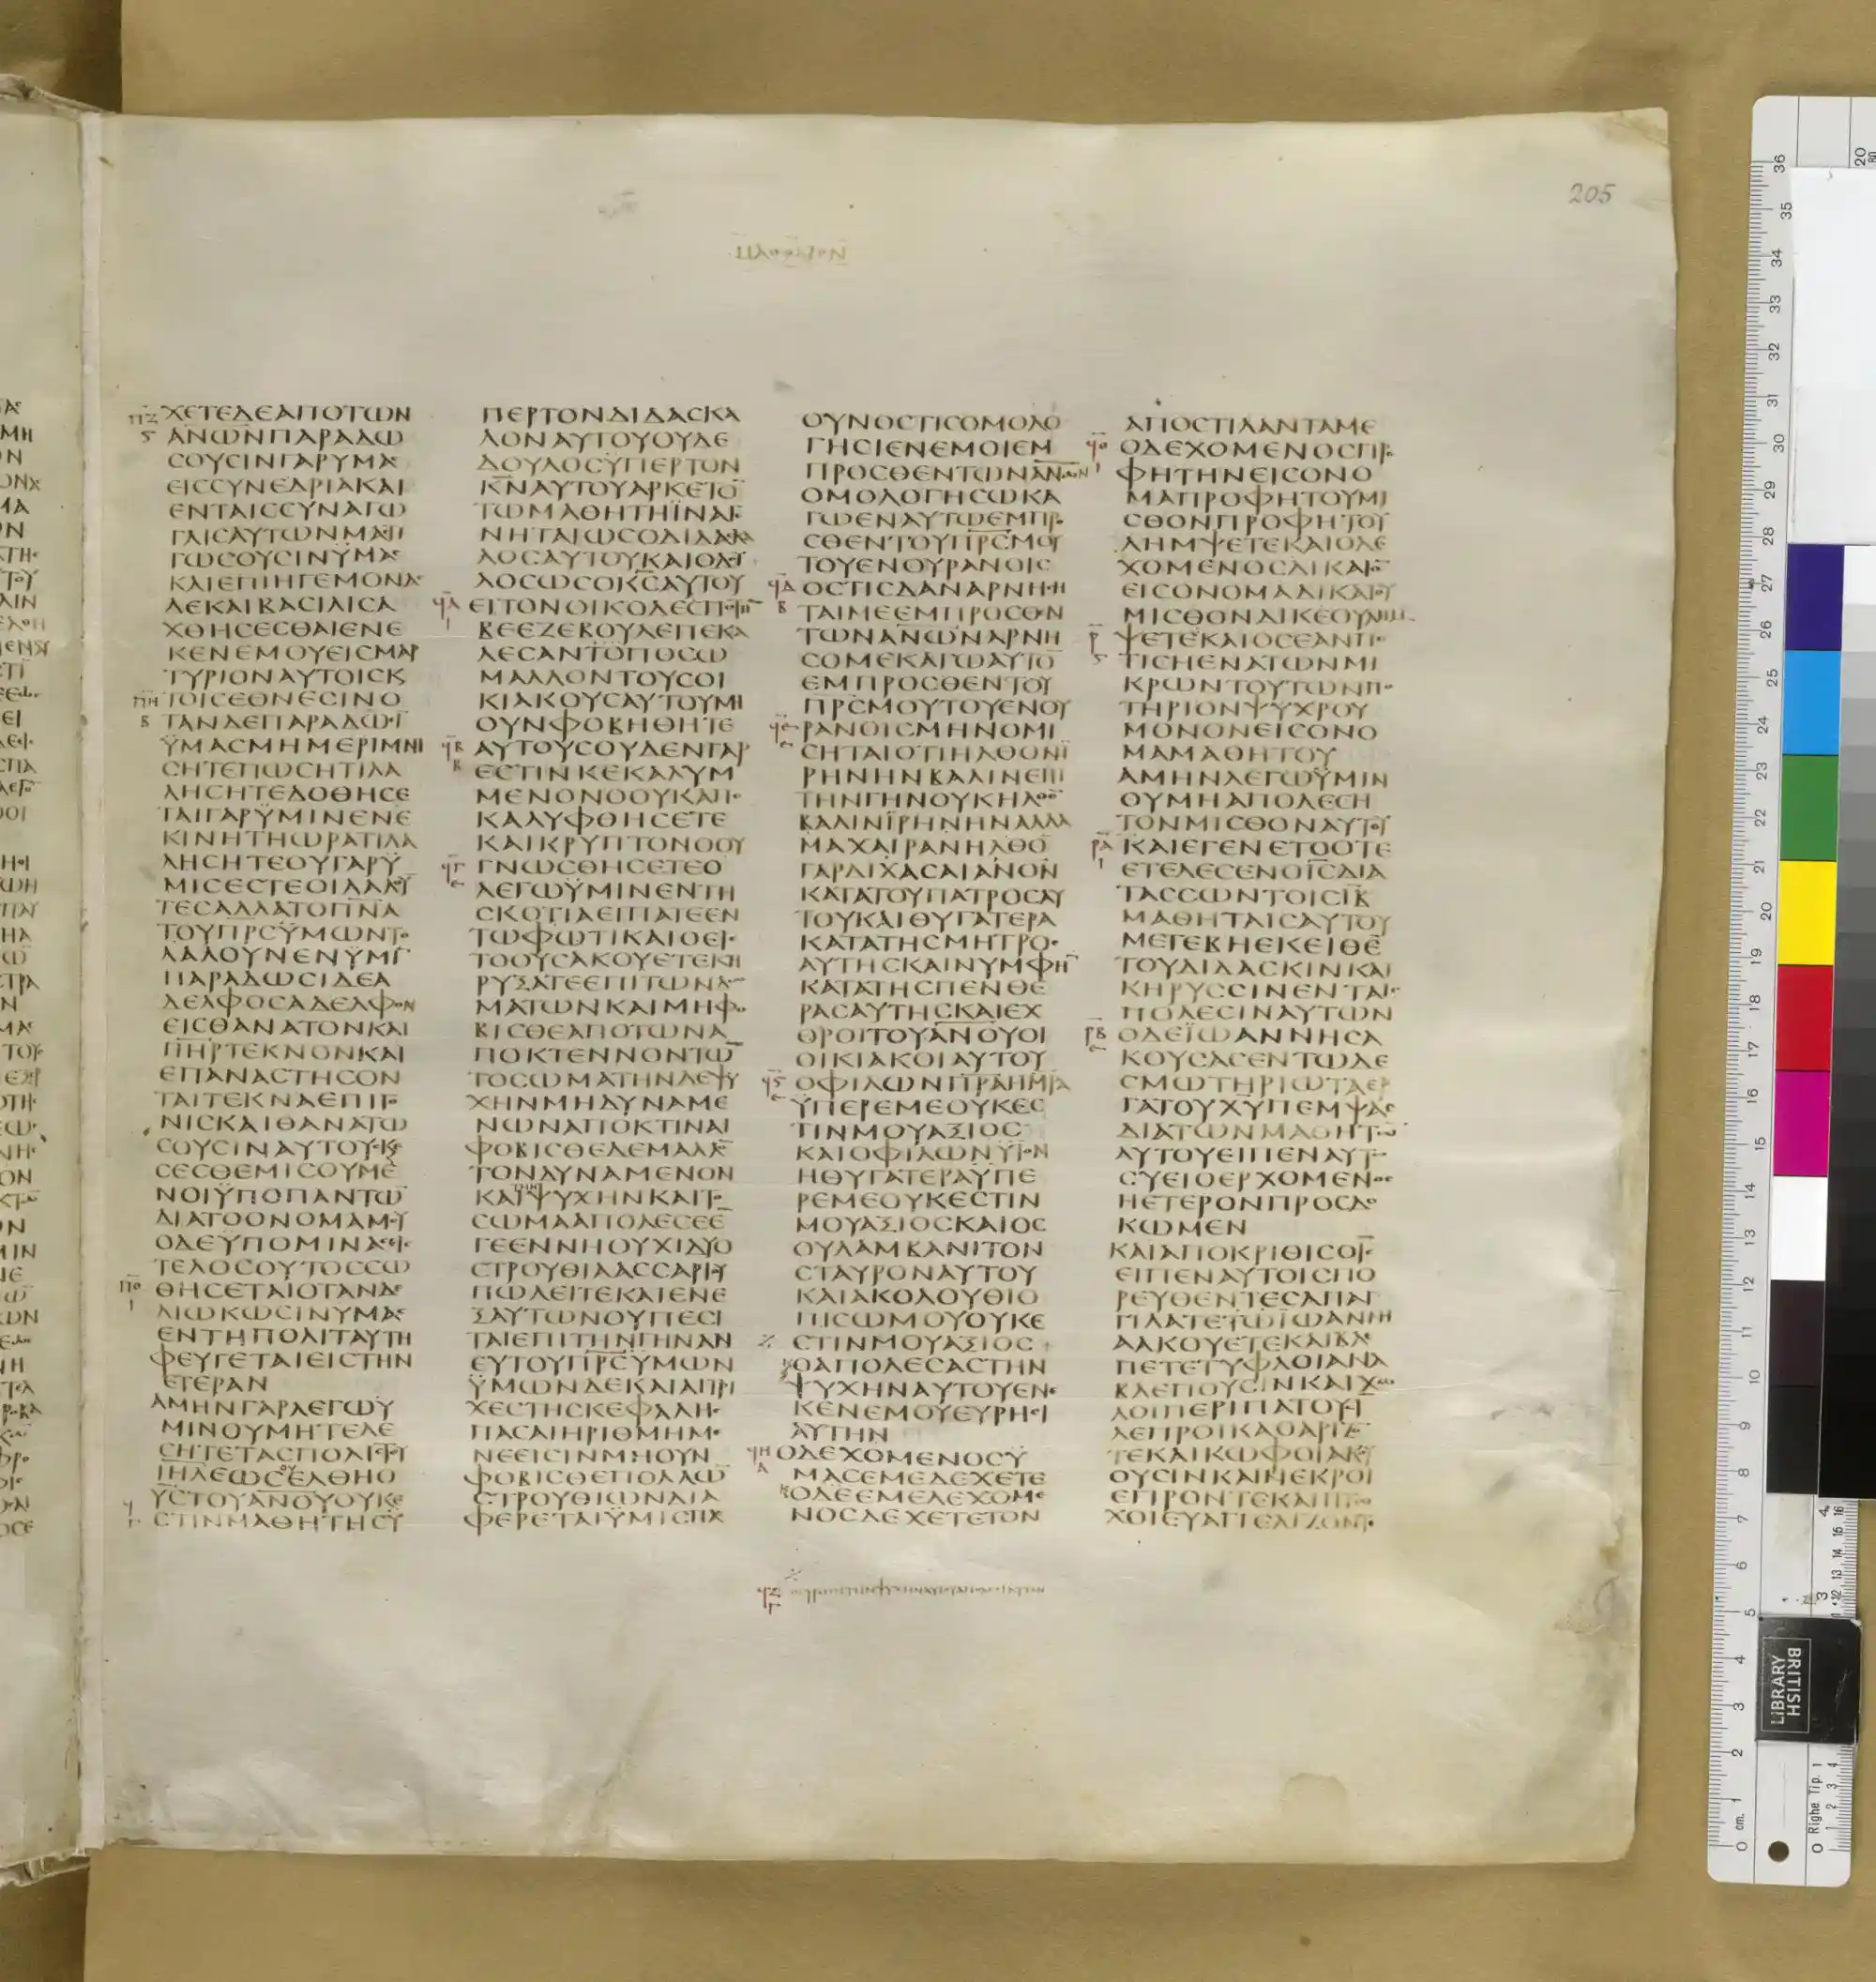 205
ΧΕΤΕΔΕΑΠΟΤΩΝ
ΑΝΩΝΠΑΡΑΔΩ
ΣΟΥΣΙΝΓΑΡΥΜΑΣ
ΕΙΣΣΥΝΕΔΡΙΑΚΑΙ
ΕΝΤΑΙΣΣΥΝΑΓΩ
ΓΑΙΣΑΥΤΩΝΜΑΣΤΙ
ΓΩΣΟΥΣΙΝΫΜΑΣ
ΚΑΙΕΠΙΗΓΕΜΟΝΑΣ
ΔΕΚΑΙΒΑΣΙΛΙΣΑ
ΧΘΗΣΕΣΘΑΙΕΝΕ
ΚΕΝΕΜΟΥΕΙΣΜΑΡ
ΤΥΡΙΟΝΑΥΤΟΙΣΚ
ΤΟΙΣΕΘΝΕΣΙΝΟ
ΤΑΝΔΕΠΑΡΑΔΩΣΙ
ΫΜΑΣΜΗΜΕΡΙΜΝΗ
ΣΗΤΕΠΩΣΗΤΙΛΑ
ΛΗΣΗΤΕΔΟΘΗΣΕ
ΤΑΙΓΑΡΫΜΙΝΕΝΕ
ΚΙΝΗΤΗΩΡΑΤΙΛΑ
ΛΗΣΗΤΕΟΥΓΑΡΫ
ΜΙΣΕΣΤΕΟΙΛΑΛΟΥ
ΤΕΣΑΛΛΑΤΟΠΝΑ
ΤΟΥΠΡΣΫΜΩΝΤΟ
ΛΑΛΟΥΝΕΝΫΜΙ
ΠΑΡΑΔΩΣΙΔΕΑ
ΔΕΛΦΟΣΑΔΕΛΦΟΝ
ΕΙΣΘΑΝΑΤΟΝΚΑΙ
ΠΗΡΤΕΚΝΟΝΚΑΙ
ΕΠΑΝΑΣΤΗΣΟΝ
ΤΑΙΤΕΚΝΑΕΠΙΓΟ
ΝΙΣΚΑΙΘΑΝΑΤΩ
ΣΟΥΣΙΝΑΥΤΟΥΣΚΕ
ΣΕΣΘΕΜΙΣΟΥΜΕ
ΝΟΙΫΠΟΠΑΝΤΩ
ΔΙΑΤΟΟΝΟΜΑΜΟΥ
ΟΔΕΥΠΟΜΙΝΑΣΕΙΣ
ΤΕΛΟΣΟΥΤΟΣΣΩ
ΘΗΣΕΤΑΙΟΤΑΝΔΕ
ΔΙΩΚΩΣΙΝΥΜΑΣ
ΕΝΤΗΠΟΛΙΤΑΥΤΗ
ΦΕΥΓΕΤΑΙΕΙΣΤΗΝ
ΕΤΕΡΑΝ
ΑΜΗΝΓΑΡΛΕΓΩΫ
ΜΙΝΟΥΜΗΤΕΛΕ
ΣΗΤΕΤΑΣΠΟΛΙΣΤΟΥ
ΙΗΛΕΩΣΟΥΕΛΘΗΟ
ΥΣΤΟΥΑΝΟΥΟΥΚΕ
ΣΤΙΝΜΑΘΗΤΗΣΫ
ΠΕΡΤΟΝΔΙΔΑΣΚΑ
ΛΟΝΑΥΤΟΥΟΥΔΕ
ΔΟΥΛΟΣΫΠΕΡΤΟΝ
ΚΝΑΥΤΟΥΑΡΚΕΤΟ
ΤΩΜΑΘΗΤΗΪΝΑΓΕ
ΝΗΤΑΙΩΣΟΔΙΔΑΣΚΑ
ΛΟΣΑΥΤΟΥΚΑΙΟΔΟΥ
ΛΟΣΩΣΟΚΣΑΥΤΟΥ
ΕΙΤΟΝΟΙΚΟΔΕΣΠΟΤΗ
ΒΕΕΖΕΒΟΥΛΕΠΕΚΑ
ΛΕΣΑΝΤΟΠΟΣΩ
ΜΑΛΛΟΝΤΟΥΣΟΙ
ΚΙΑΚΟΥΣΑΥΤΟΥΜΗ
ΟΥΝΦΟΒΗΘΗΤΕ
ΑΥΤΟΥΣΟΥΔΕΝΓΑΡ
ΕΣΤΙΝΚΕΚΑΛΥΜ
ΜΕΝΟΝΟΟΥΚΑΠΟ
ΚΑΛΥΦΘΗΣΕΤΕ
ΚΑΙΚΡΥΠΤΟΝΟΟΥ
ΓΝΩΣΘΗΣΕΤΕΟ
ΛΕΓΩΫΜΙΝΕΝΤΗ
ΣΚΟΤΙΑΕΙΠΑΤΕΕΝ
ΤΩΦΩΤΙΚΑΙΟΕΙΣ
ΤΟΟΥΣΑΚΟΥΕΤΕΚΗ
ΡΥΞΑΤΕΕΠΙΤΩΝΔΩ
ΜΑΤΩΝΚΑΙΜΗΦΟ
ΒΙΣΘΕΑΠΟΤΩΝΑ
ΠΟΚΤΕΝΝΟΝΤΩ
ΤΟΣΩΜΑΤΗΝΔΕΨΥ
ΧΗΝΜΗΔΥΝΑΜΕ
ΝΩΝΑΠΟΚΤΙΝΑΙ
ΦΟΒΙΣΘΕΔΕΜΑΛΛΟ
ΤΟΝΔΥΝΑΜΕΝΟΝ
ΚΑΙΤΗΝΨΥΧΗΝΚΑΙΤΟ
ΣΩΜΑΑΠΟΛΕΣΕΕ
ΓΕΕΝΝΗΟΥΧΙΔΥΟ
ΣΤΡΟΥΘΙΑΑΣΣΑΡΙΟΥ
ΠΩΛΕΙΤΕΚΑΙΕΝΕ
ΞΑΥΤΩΝΟΥΠΕΣΙ
ΤΑΙΕΠΙΤΗΝΓΗΝΑΝ
ΕΥΤΟΥΠΡΣΫΜΩΝ
ΫΜΩΝΔΕΚΑΙΑΙΤΡΙ
ΧΕΣΤΗΣΚΕΦΑΛΗΣ
ΠΑΣΑΙΗΡΙΘΜΗΜΕ
ΝΕΕΙΣΙΝΜΗΟΥΝ
ΦΟΒΙΣΘΕΠΟΛΛΩ
ΣΤΡΟΥΘΙΩΝΔΙΑ
ΦΕΡΕΤΑΙΫΜΙΣΠΑΣ
ΟΥΝΟΣΤΙΣΟΜΟΛΟ
ΓΗΣΙΕΝΕΜΟΙΕΜ
ΠΡΟΣΘΕΝΤΩΝΑΝΩΝ
ΟΜΟΛΟΓΗΣΩΚΑ
ΓΩΕΝΑΥΤΩΕΜΠΡΟ
ΣΘΕΝΤΟΥΠΡΣΜΟΥ
ΤΟΥΕΝΟΥΡΑΝΟΙΣ
ΟΣΤΙΣΔΑΝΑΡΝΗΣΗ
ΤΑΙΜΕΕΜΠΡΟΣΘΕΝ
ΤΩΝΑΝΩΝΑΡΝΗ
ΣΟΜΕΚΑΓΩΑΥΤΟ
ΕΜΠΡΟΣΘΕΝΤΟΥ
ΠΡΣΜΟΥΤΟΥΕΝΟΥ
ΡΑΝΟΙΣΜΗΝΟΜΙ
ΣΗΤΑΙΟΤΙΗΛΘΟΝΪ
ΡΗΝΗΝΒΑΛΙΝΕΠΙ
ΤΗΝΓΗΝΟΥΚΗΛΘΟ
ΒΑΛΙΝΪΡΗΝΗΝΑΛΛΑ
ΜΑΧΑΙΡΑΝΗΛΘΟ
ΓΑΡΔΙΧΑΣΑΙΑΝΟΝ
ΚΑΤΑΤΟΥΠΑΤΡΟΣΑΥ
ΤΟΥΚΑΙΘΥΓΑΤΕΡΑ
ΚΑΤΑΤΗΣΜΗΤΡΟΣ
ΑΥΤΗΣΚΑΙΝΥΜΦΗ
ΚΑΤΑΤΗΣΠΕΝΘΕ
ΡΑΣΑΥΤΗΣΚΑΙΕΧ
ΘΡΟΙΤΟΥΑΝΟΥΟΙ
ΟΙΚΙΑΚΟΙΑΥΤΟΥ
ΟΦΙΛΩΝΠΡΑΗΜΡΑ
ΫΠΕΡΕΜΕΟΥΚΕΣ
ΤΙΝΜΟΥΑΞΙΟΣ
ΚΑΙΟΦΙΛΩΝΫΙΟΝ
ΗΘΥΓΑΤΕΡΑΫΠΕ
ΡΕΜΕΟΥΚΕΣΤΙΝ
ΜΟΥΑΞΙΟΣΚΑΙΟΣ
ΟΥΛΑΜΒΑΝΙΤΟΝ
ΣΤΑΥΡΟΝΑΥΤΟΥ
ΚΑΙΑΚΟΛΟΥΘΙΟ
ΠΙΣΩΜΟΥΟΥΚΕ
ΣΤΙΝΜΟΥΑΞΙΟΣ
ΟΑΠΟΛΕΣΑΣΤΗΝ
ΨΥΧΗΝΑΥΤΟΥΕΝΕ
ΚΕΝΕΜΟΥΕΥΡΗΣΙ
ΑΥΤΗΝ
ΟΔΕΧΟΜΕΝΟΣΫ
ΜΑΣΕΜΕΔΕΧΕΤΕ
ΟΔΕΕΜΕΔΕΧΟΜΕ
ΝΟΣΔΕΧΕΤΕΤΟΝ
ΑΠΟΣΤΙΛΑΝΤΑΜΕ
ΟΔΕΧΟΜΕΝΟΣΠΡΟ
ΦΗΤΗΝΕΙΣΟΝΟ
ΜΑΠΡΟΦΗΤΟΥΜΙ
ΣΘΟΝΠΡΟΦΗΤΟΥ
ΛΗΜΨΕΤΕΚΑΙΟΔΕ
ΧΟΜΕΝΟΣΔΙΚΑΙΟ
ΕΙΣΟΝΟΜΑΔΙΚΑΙΟΥ
ΜΙΣΘΟΝΔΙΚΕΟΥΛΗΜ
ΨΕΤΕΚΑΙΟΣΕΑΝΠΟ
ΤΙΣΗΕΝΑΤΩΝΜΙ
ΚΡΩΝΤΟΥΤΩΝΠΟ
ΤΗΡΙΟΝΨΥΧΡΟΥ
ΜΟΝΟΝΕΙΣΟΝΟ
ΜΑΜΑΘΗΤΟΥ
ΑΜΗΝΛΕΓΩΫΜΙΝ
ΟΥΜΗΑΠΟΛΕΣΗ
ΤΟΝΜΙΣΘΟΝΑΥΤΟΥ
ΚΑΙΕΓΕΝΕΤΟΟΤΕ
ΕΤΕΛΕΣΕΝΟΙΣΔΙΑ
ΤΑΣΣΩΝΤΟΙΣΙΒ
ΜΑΘΗΤΑΙΣΑΥΤΟΥ
ΜΕΤΕΒΗΕΚΕΙΘΕ
ΤΟΥΔΙΔΑΣΚΙΝΚΑΙ
ΚΗΡΥΣΣΙΝΕΝΤΑΙΣ
ΠΟΛΕΣΙΝΑΥΤΩΝ
ΟΔΕΪΩΑΝΝΗΣΑ
ΚΟΥΣΑΣΕΝΤΩΔΕ
ΣΜΩΤΗΡΙΩΤΑΕΡ
ΓΑΤΟΥΧΥΠΕΜΨΑΣ
ΔΙΑΤΩΝΜΑΘΗΤΩ
ΑΥΤΟΥΕΙΠΕΝΑΥΤΩ
ΣΥΕΙΟΕΡΧΟΜΕΝΟΣ
ΗΕΤΕΡΟΝΠΡΟΣΔΟ
ΚΩΜΕΝ
ΚΑΙΑΠΟΚΡΙΘΙΣΟΙΣ
ΕΙΠΕΝΑΥΤΟΙΣΠΟ
ΡΕΥΘΕΝΤΕΣΑΠΑΓ
ΓΙΛΑΤΕΤΩΪΩΑΝΝΗ
ΑΑΚΟΥΕΤΕΚΑΙΒΛΕ
ΠΕΤΕΤΥΦΛΟΙΑΝΑ
ΒΛΕΠΟΥΣΙΝΚΑΙΧΩ
ΛΟΙΠΕΡΙΠΑΤΟΥΣΙ
ΛΕΠΡΟΙΚΑΘΑΡΙΖΟ
ΤΕΚΑΙΚΩΦΟΙΑΚΟΥ
ΟΥΣΙΝΚΑΙΝΕΚΡΟΙ
ΕΓΙΡΟΝΤΕΚΑΙΠΤΩ
ΧΟΙΕΥΑΓΓΕΛΙΖΟΝΤΕ